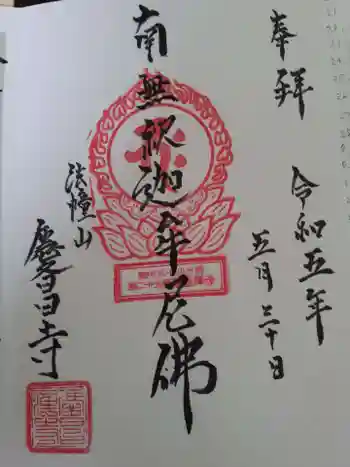 奉拝
令和五年
五月三十日
南無釈迦牟尼佛
法幢山
慶昌寺